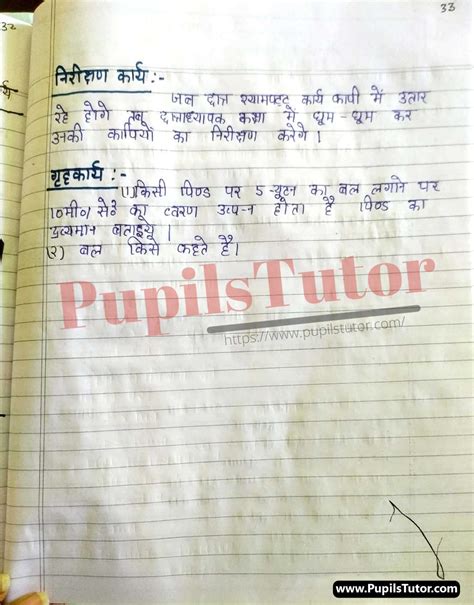 33
32
निरीक्षण कार्य :-
जब छात्र श्यामपट्ट कार्य कापी में उतार
रहे होगे तब छात्राध्यापक कक्षा में घूम-घूम कर
उनकी कापियों का निरीक्षण करेगे।
गृहकार्य :-
(1) किसी पिण्ड पर 5-यूटन का बल लगाने पर
10मी०/ सेरे का त्वरण उत्प-न होता है पिण्ड का
द्रव्यमान बताइयें।
(2) बल किसे कहते है।
PupilsTutor
https://www.pupilstutor.com/
www.PupilsTutor.com